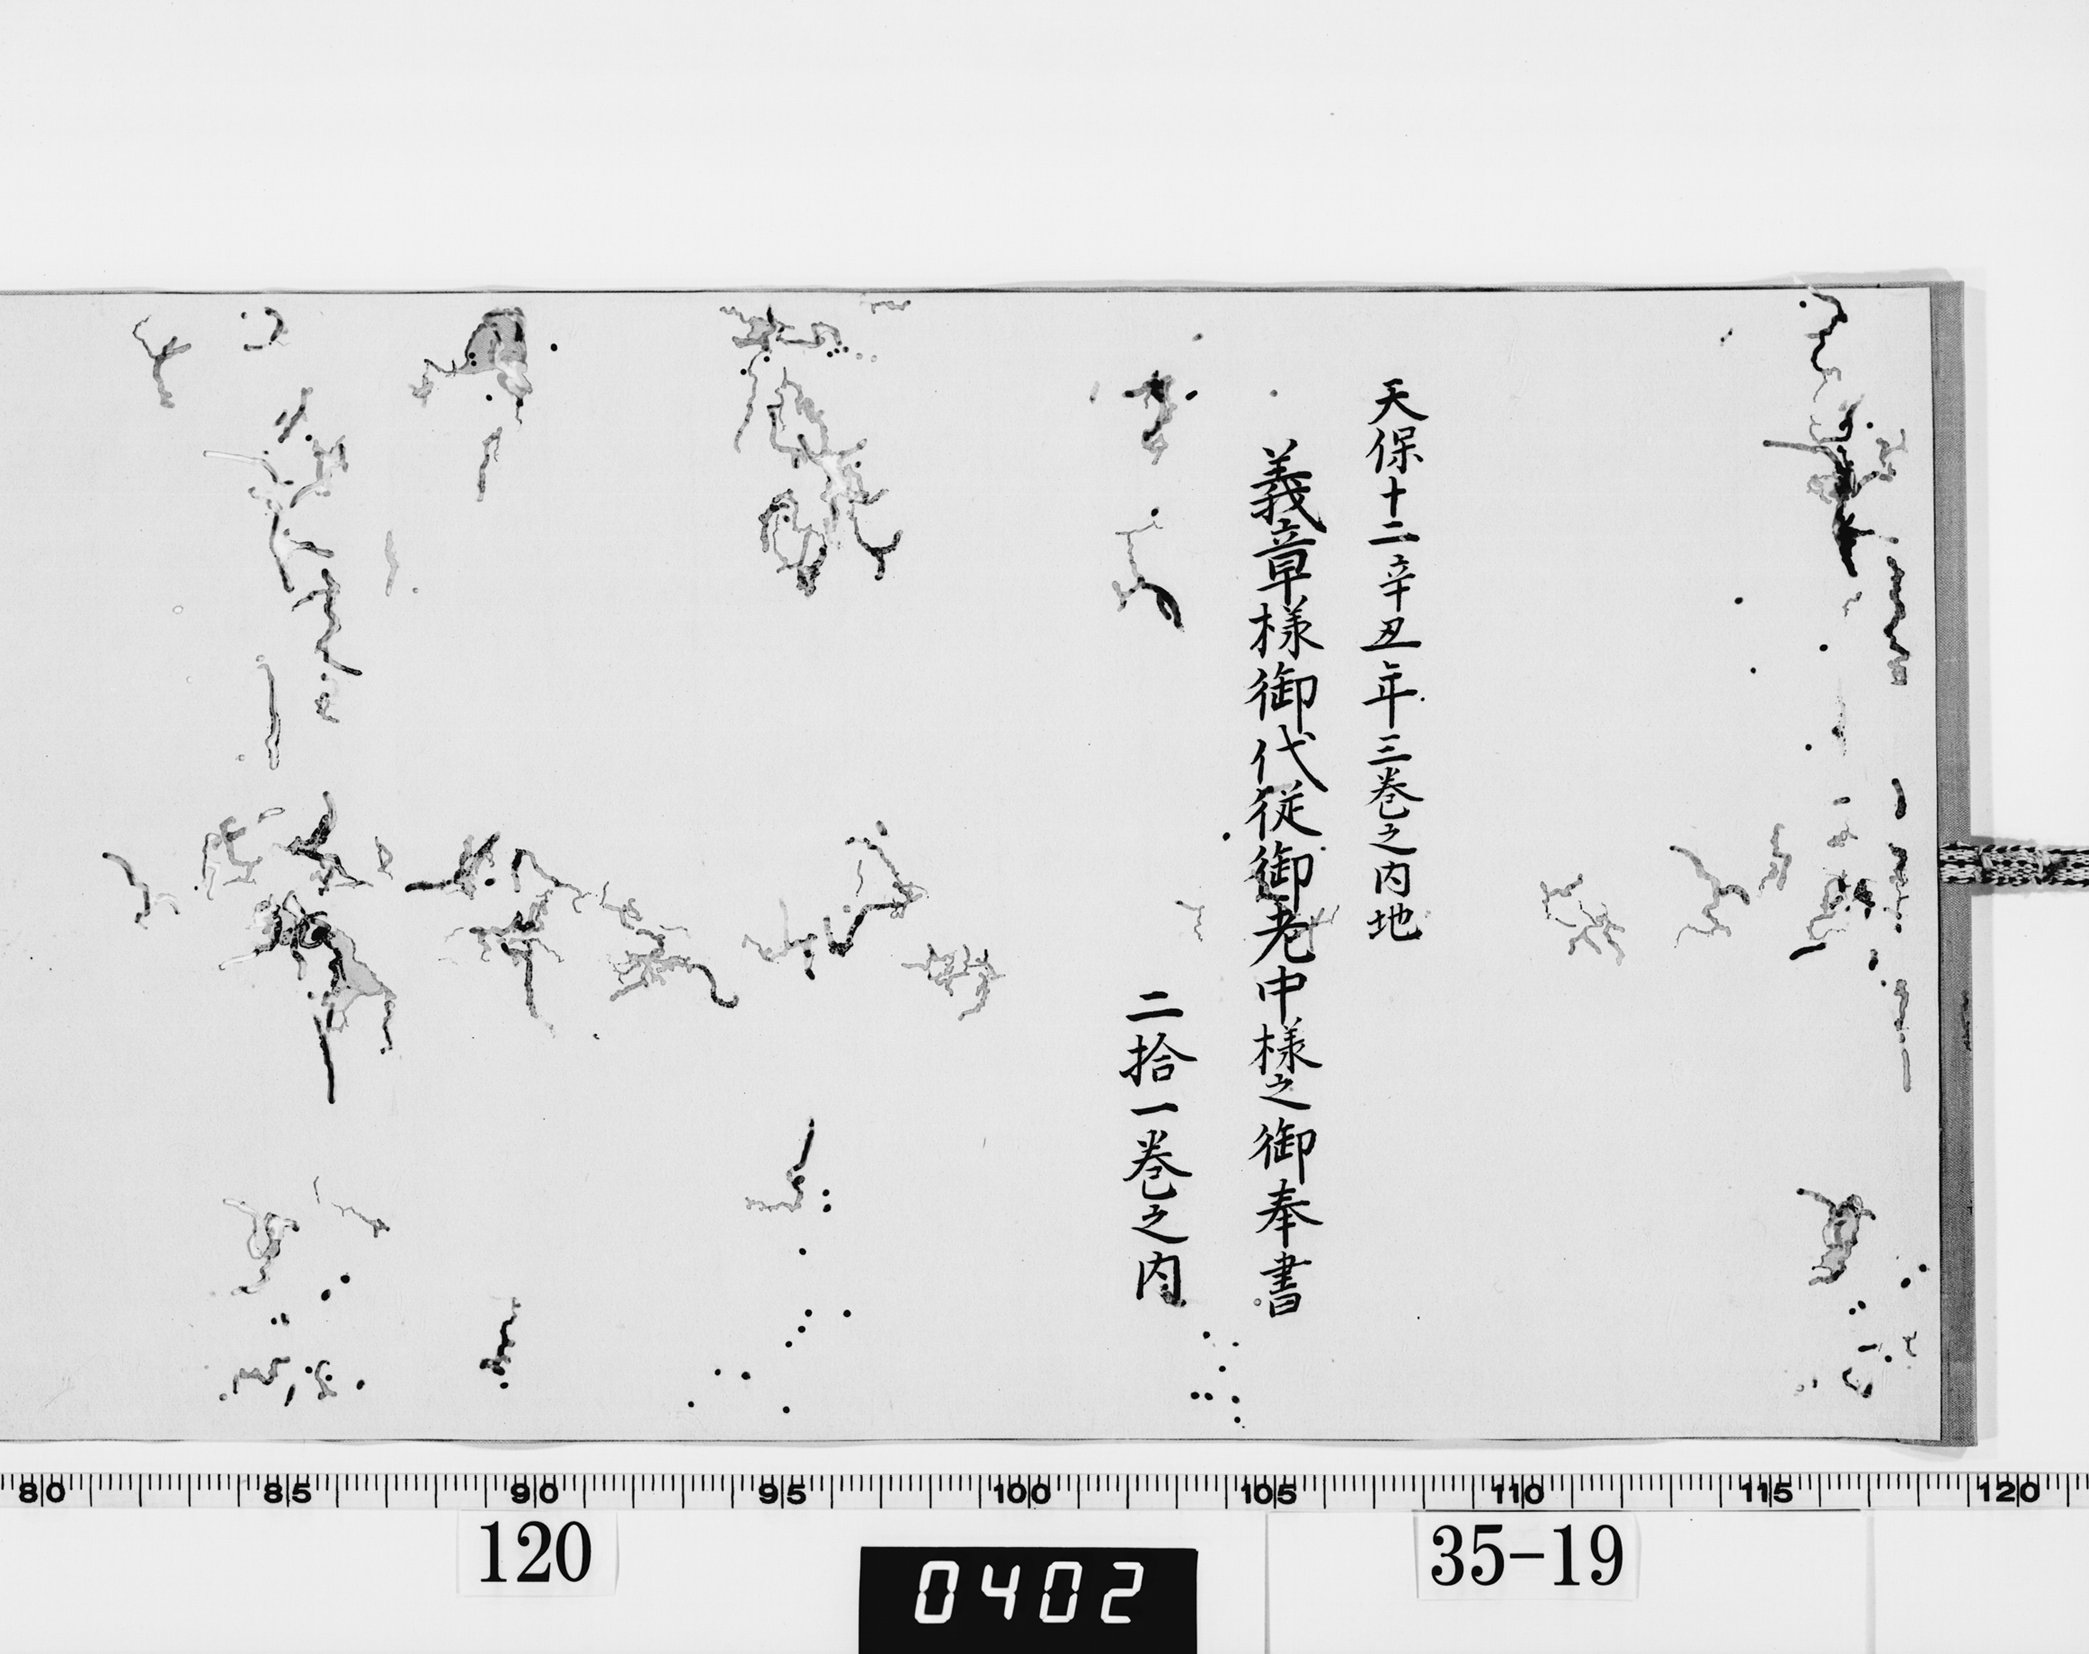 天保十二辛丑年三巻之内地
義章様御代従御老中様之御奉書
二拾一巻之内
80 85 90 95 100 105 110 115 120
120
0402
35-19